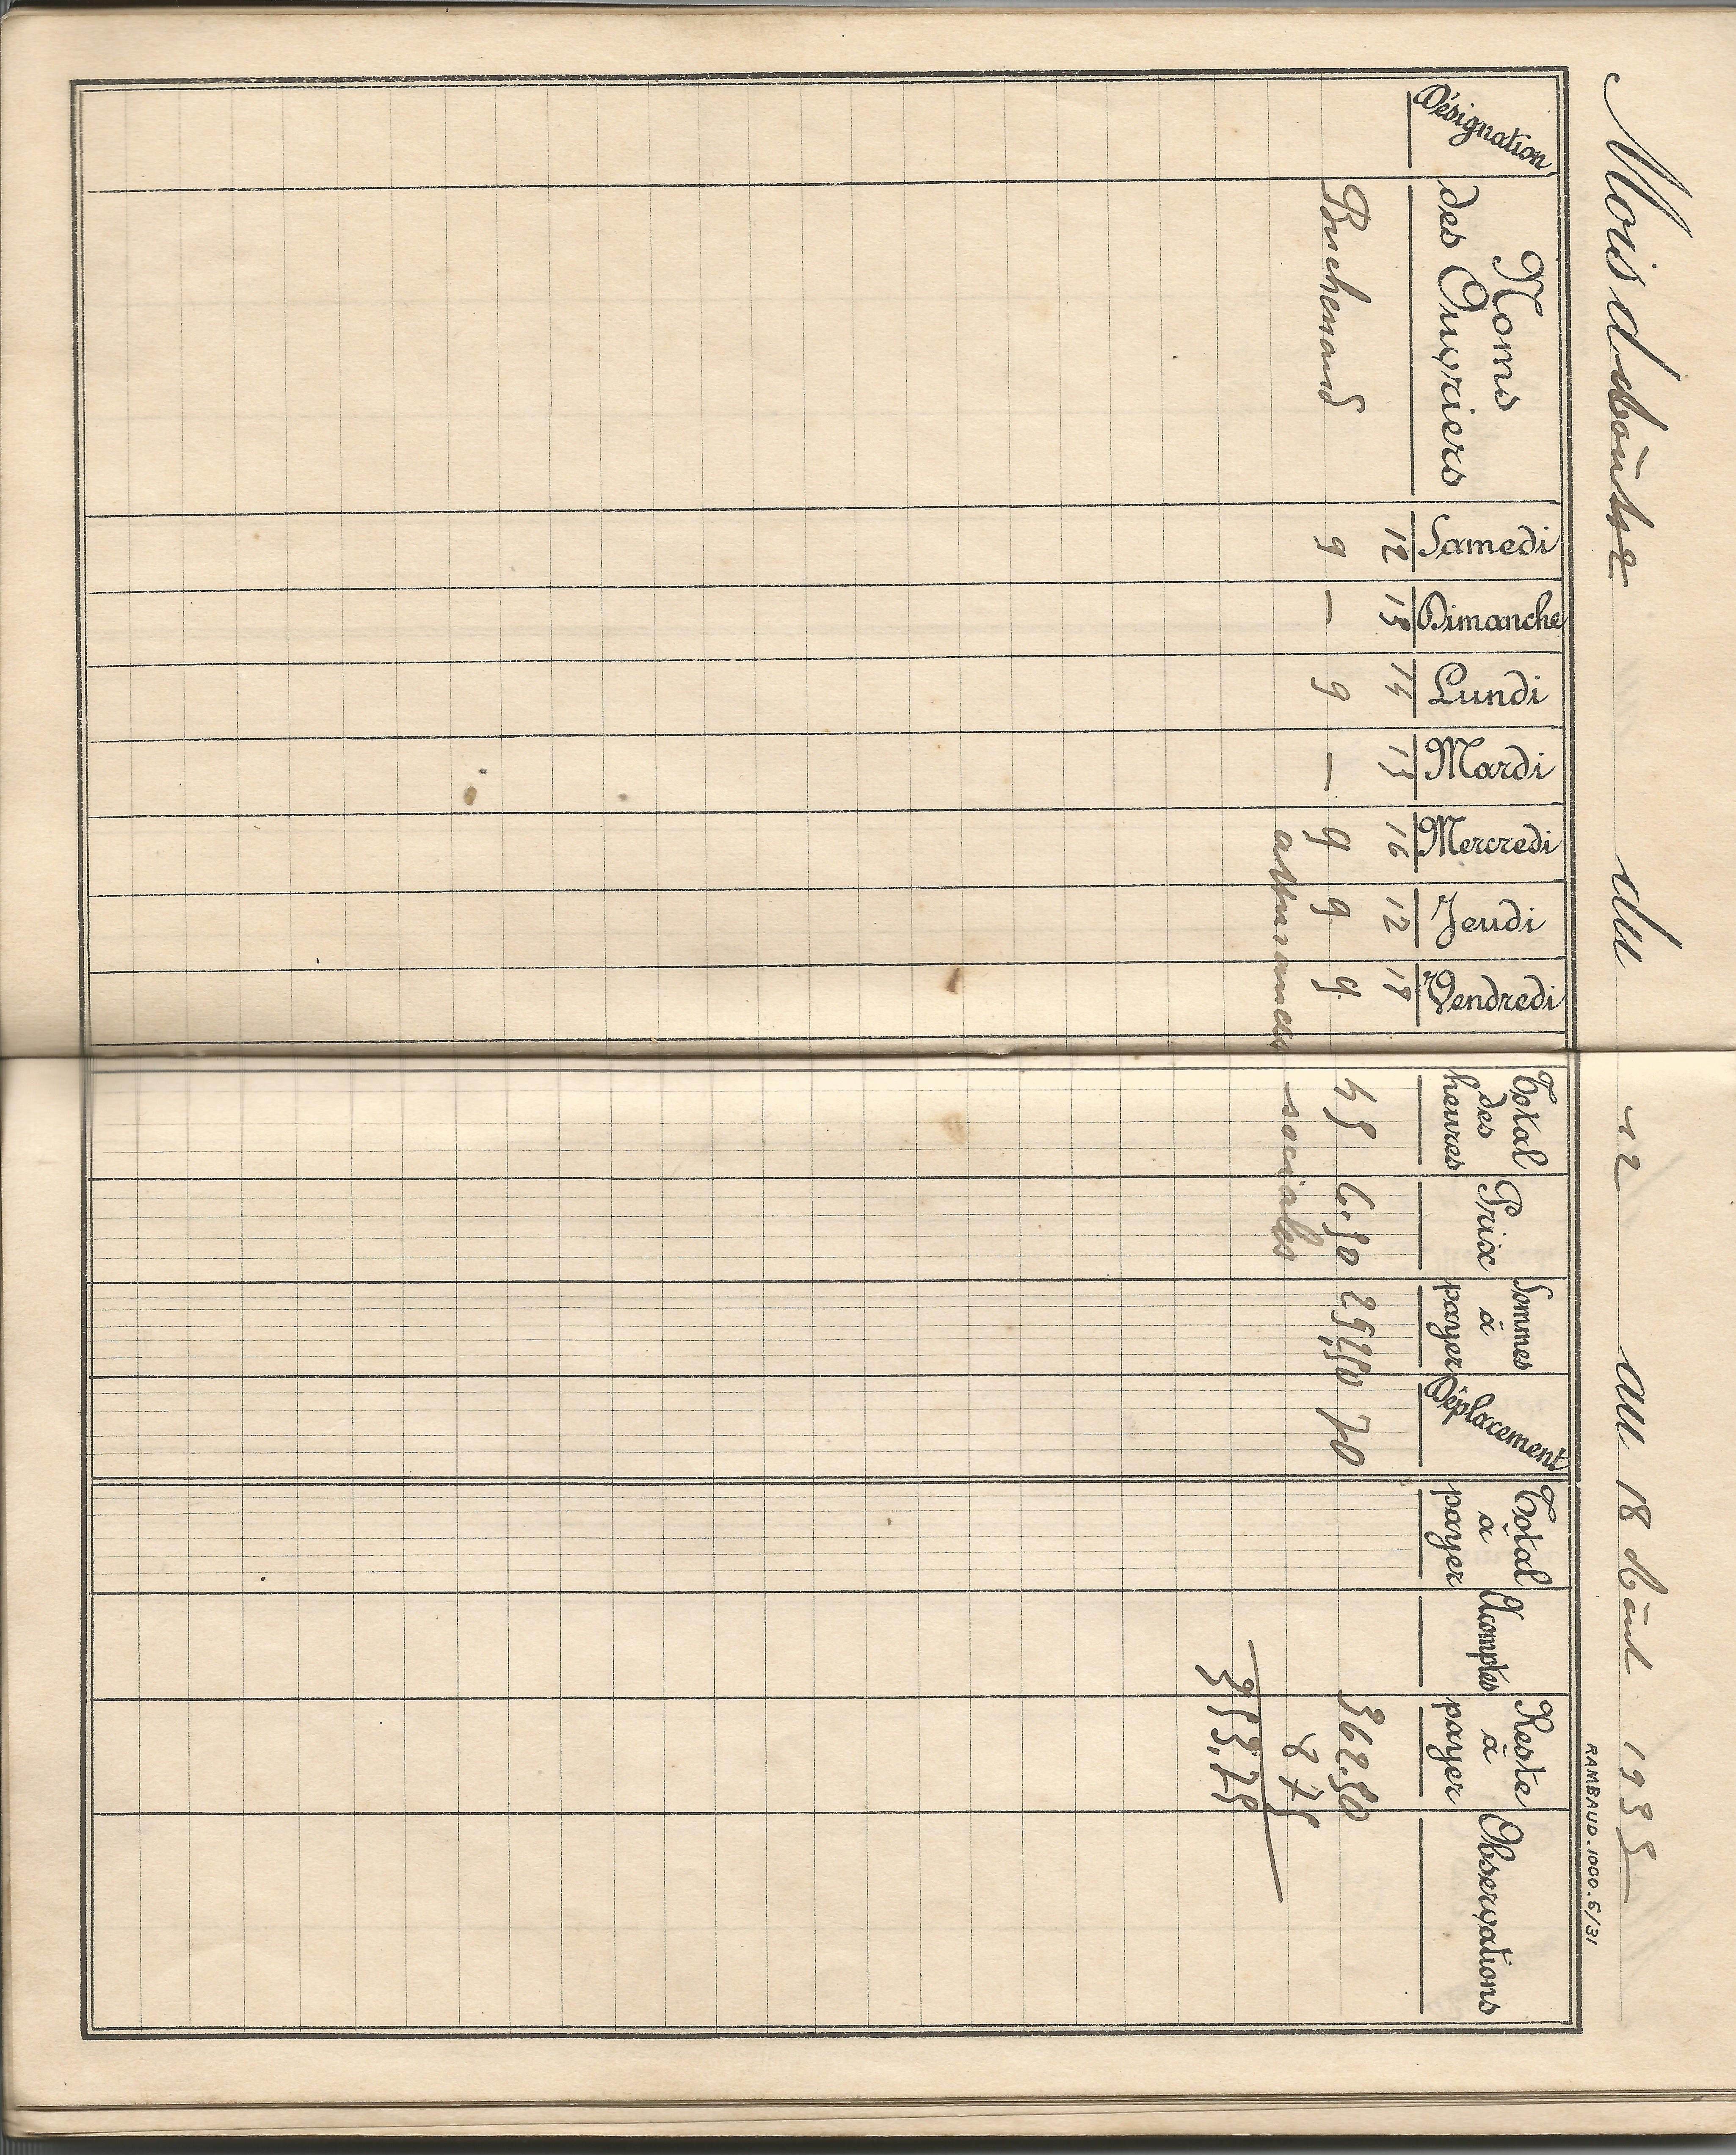 Mois d'Août du 12 au 18 Août 1933
RAMBAUD.1000.5/31
Désignation Noms des Ouvriers Samedi Dimanche Lundi Mardi Mercredi Jeudi Vendredi Total des heures Prix Sommes à payer Déplacement Total à payer Acomptes Reste à payer Observations
12 13 14 15 16 17 18
Buchenaud 9 — 9 — 9 9 9 45 6.50 292,50 70 362.50
assurances sociales 8 75
353,75